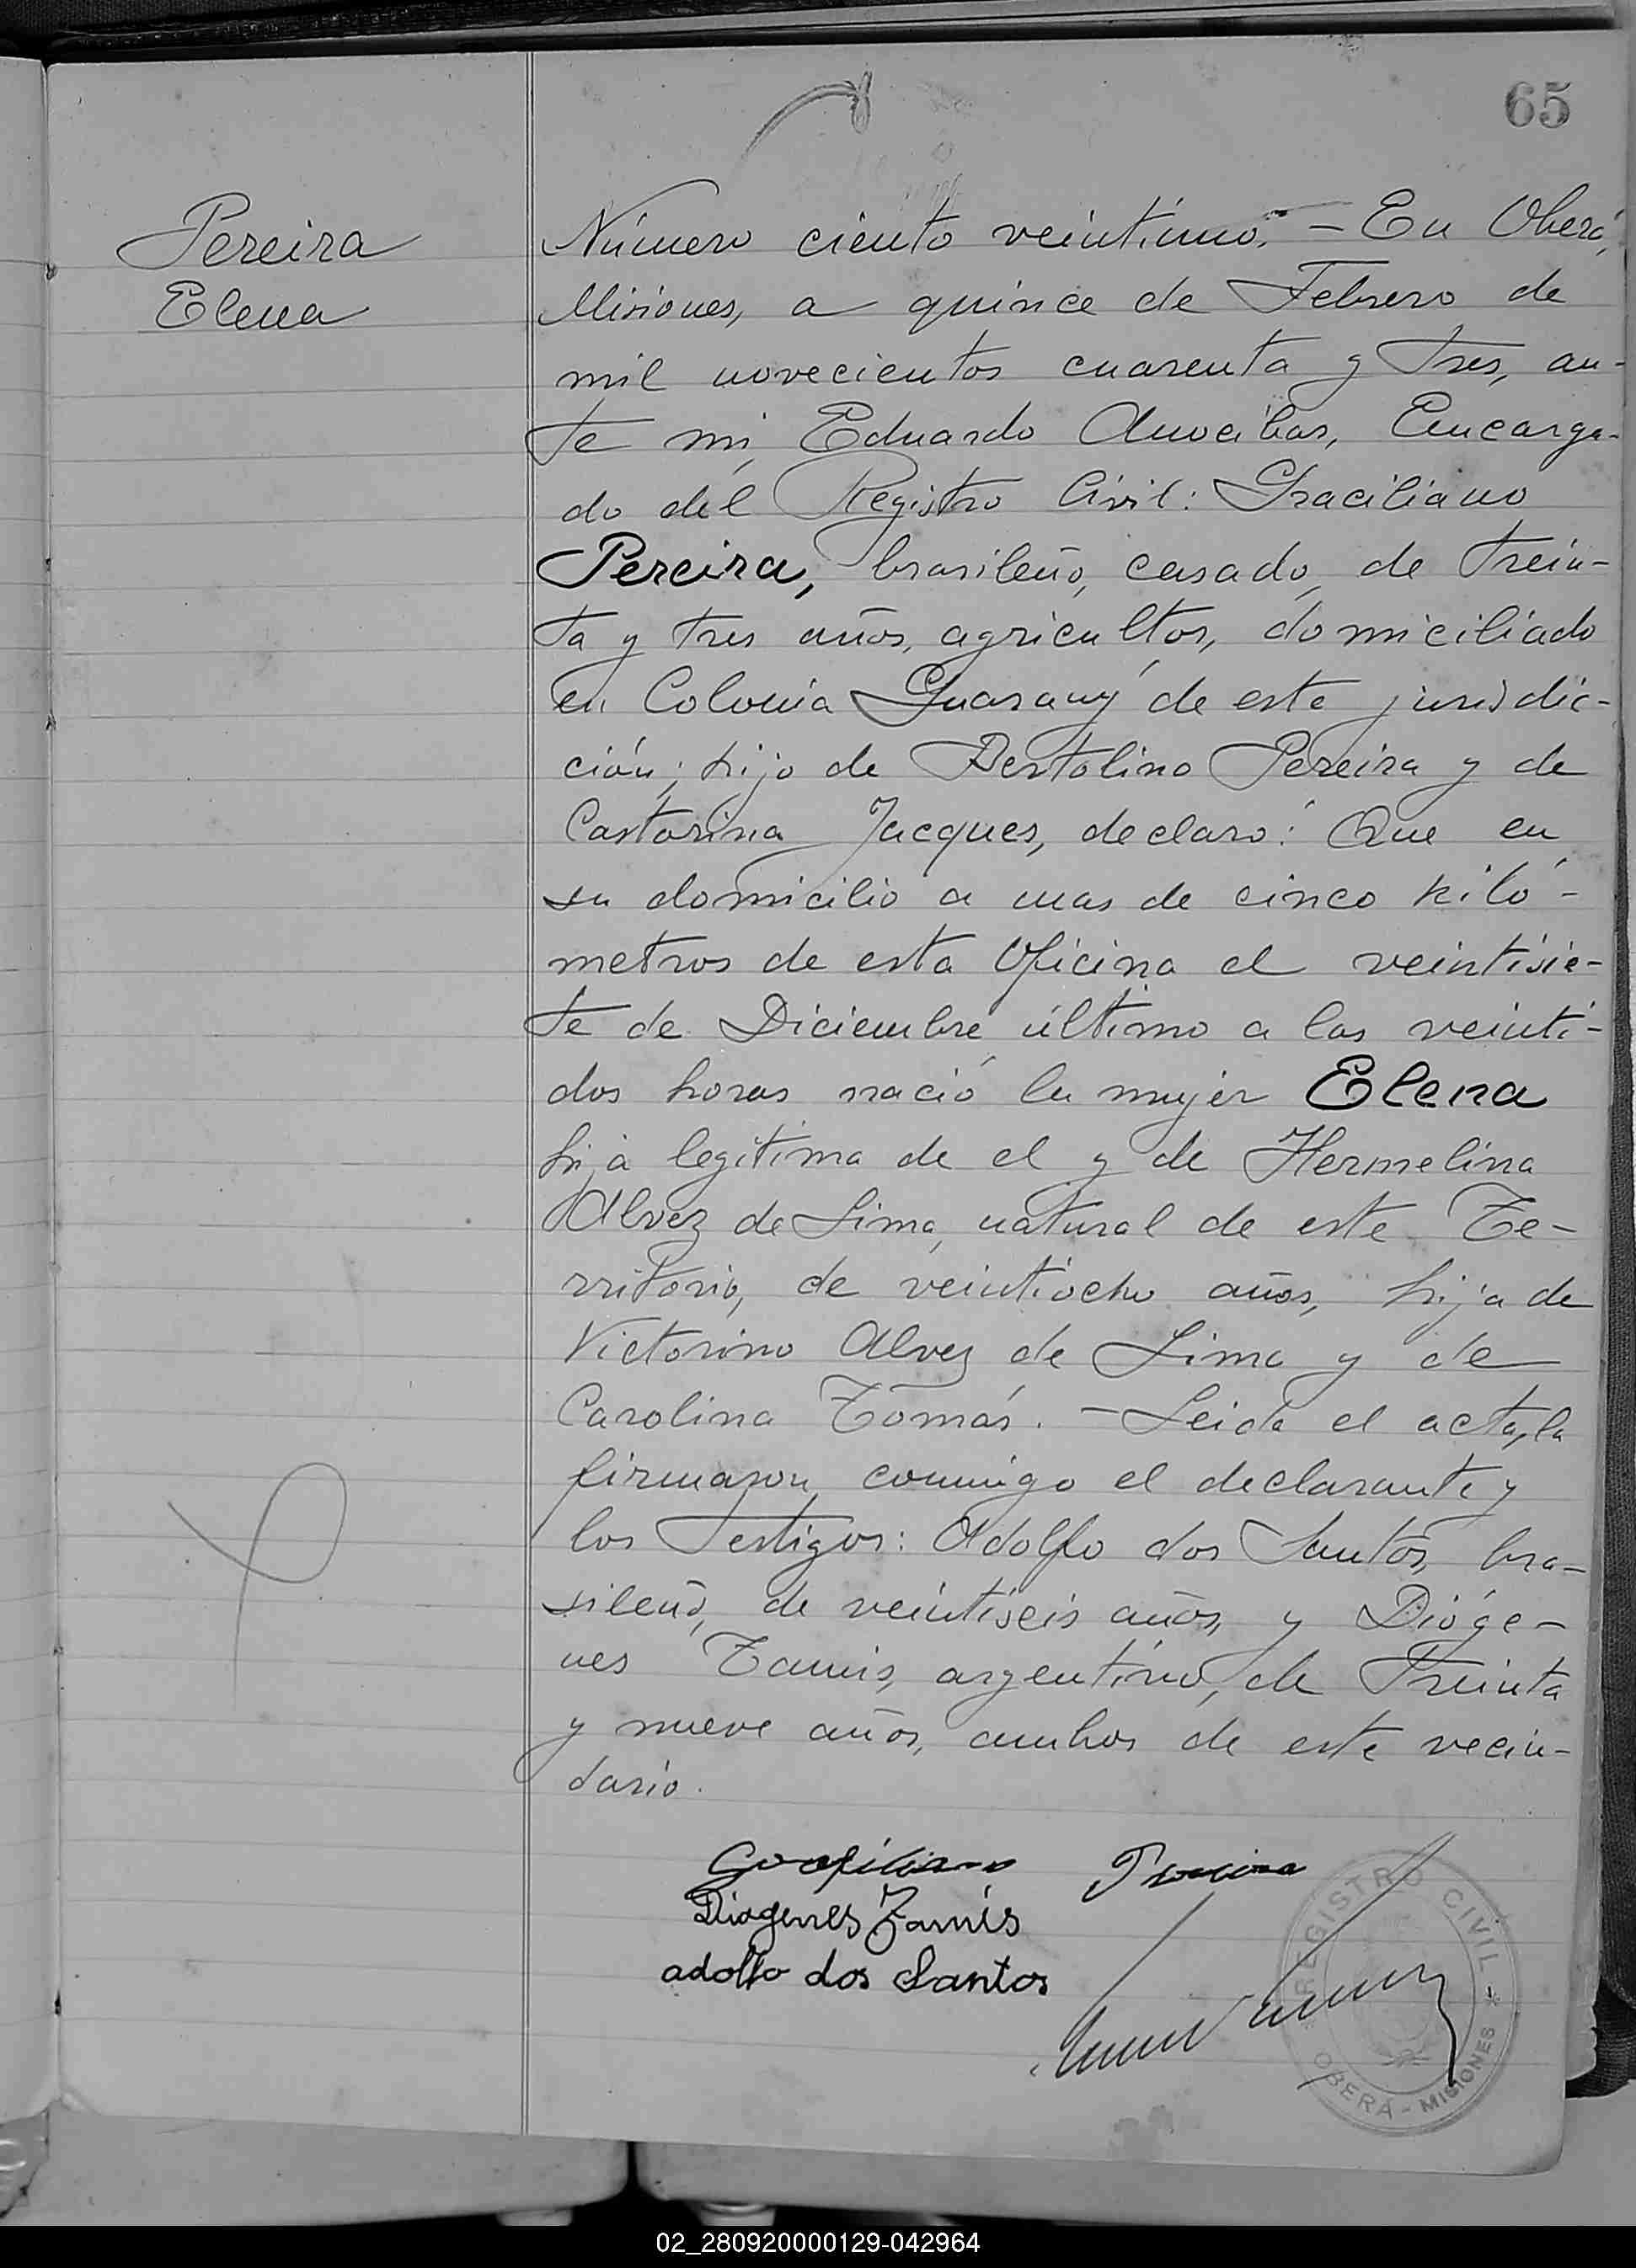 65
Pereira
Elena
Número ciento veintiuno. — En Oberá,
Misiones, a quince de Febrero de
mil novecientos cuarenta y tres, an-
te mi, Eduardo Encarga-
do del Registro Civil: Graciliano
Pereira, brasileño, casado, de trein-
ta y tres años, agricultor, domiciliado
en Colonia Guarany de este jurisdic-
ción; hijo de Bertolino Pereira y de
Castorina Jacques, declaró: Que en
su domicilio a mas de cinco kiló-
metros de esta Oficina el veintisie-
te de Diciembre último a las veinti-
dos horas nació la mujer Elena
hija legítima de el y de Hermelina
Alvez de Lima, natural de este Te-
rritorio, de veintiocho años, hija de
Victorino Alvez de Lima y de
Carolina Tomás. — Leida el acta, la
firmaron conmigo el declarante y
los testigos: Adolfo dos Santos, bra-
sileño, de veintiseis años, y Dióge-
nes Tamis, argentino, de treinta
y nueve años, ambos de este vecin-
dario.
Pereira
Diogenes Tamis
adolfo dos Santos
REGISTRO CIVIL
OBERÁ - MISIONES
02_280920000129-042964